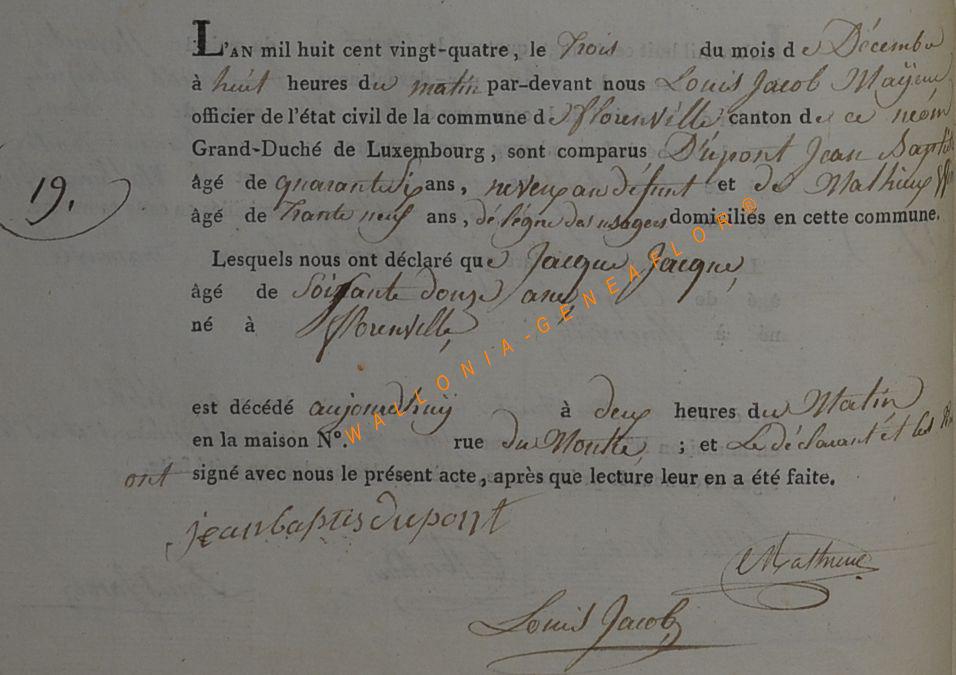 L'AN mil huit cent vingt-quatre, le trois du mois de Décembre
à huit heures du matin par-devant nous Louis Jacob Mayeur
officier de l'état civil de la commune de florenville canton de ce nom
Grand-Duché de Luxembourg, sont comparus Dupont Jean Baptiste
19. âgé de quarante six ans, neveu au défunt et de Mathieu
âgé de trante neuf ans, délégué des usagers domiciliés en cette commune.
Lesquels nous ont déclaré que Jacque Jacque,
âgé de Soixante douze ans
né à florenville,
est décédé aujourdhuÿ à deux heures du Matin
en la maison N°. rue du Moutié, ; et Le déclarant et les
ont signé avec nous le présent acte, après que lecture leur en a été faite.
jean baptis dupont
Louis Jacob
WALLONIA-GENEAFLOR ®